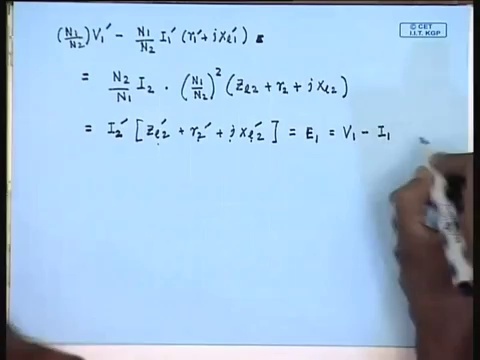 © CET
I.I.T. KGP
(N1/N2) V1′ − N1/N2 I1′ (r1′ + j xl1′) =
= N2/N1 I2 · (N1/N2)² (Zl2 + r2 + j xl2)
= I2′ [ Zl2′ + r2′ + j xl2′ ] = E1 = V1 − I1